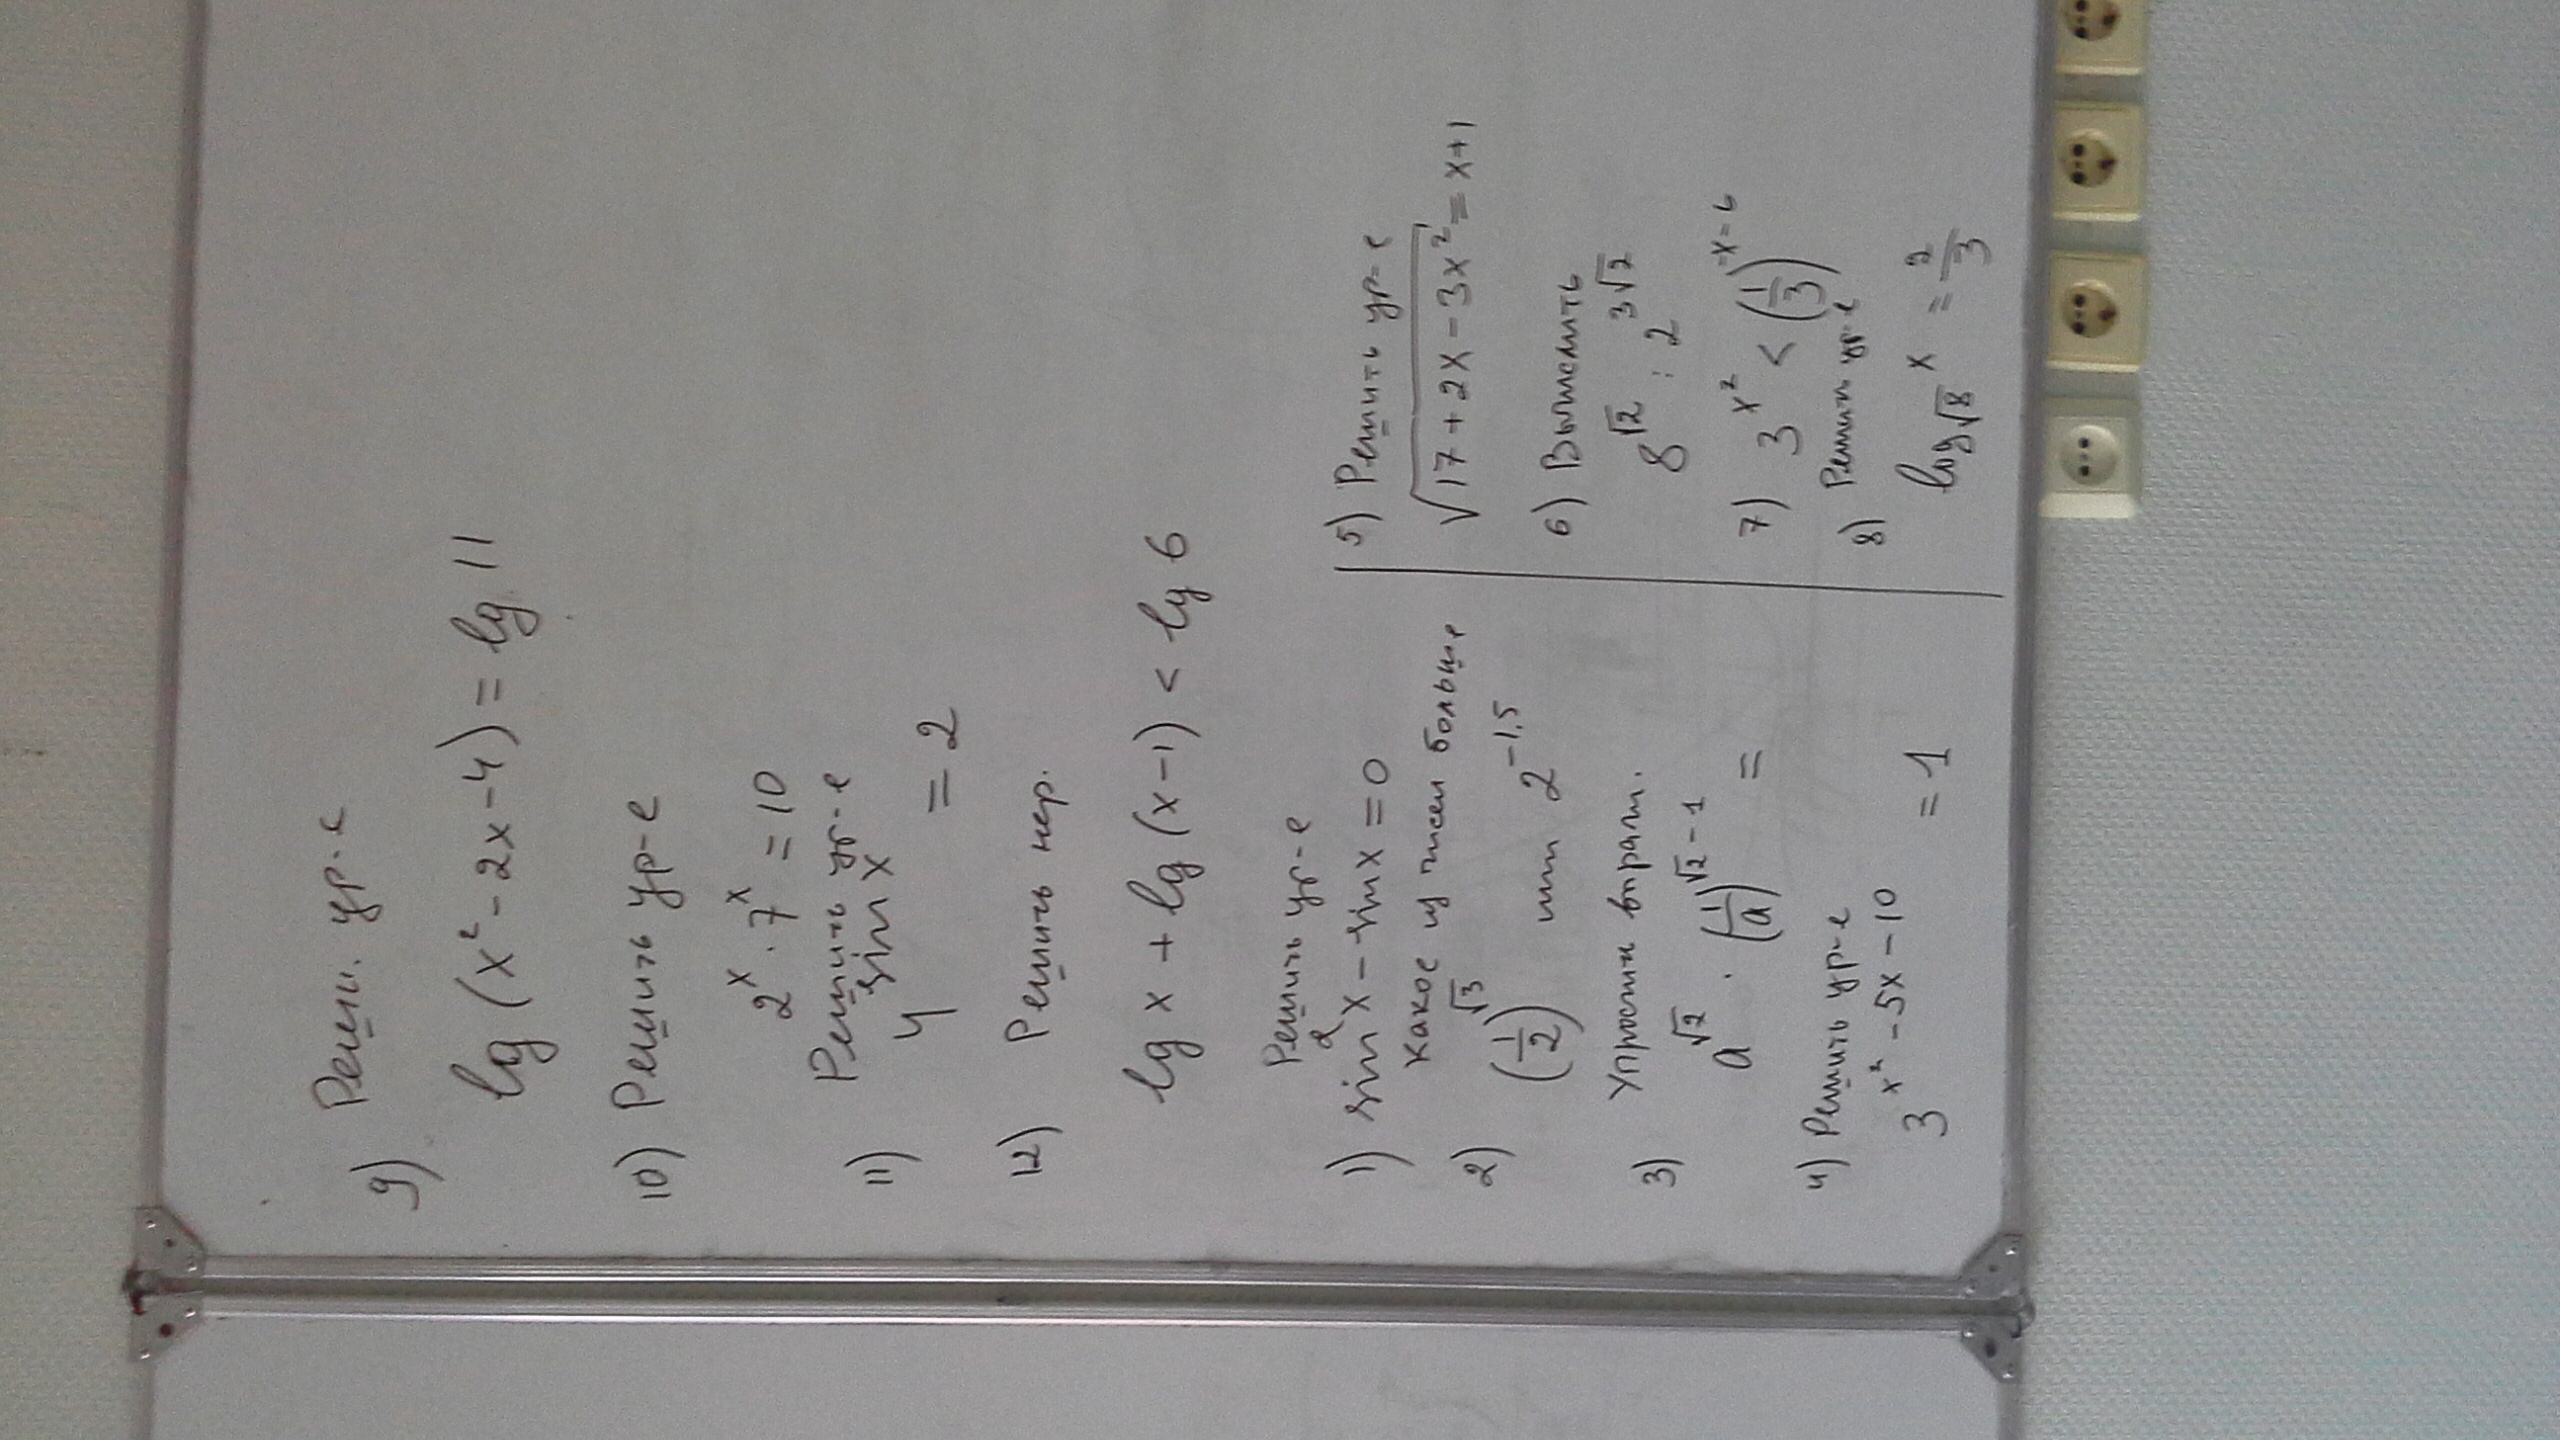 9) Решн. ур-е
lg(x²-2x-4) = lg 11
10) Решить ур-е
2ˣ · 7ˣ = 10
11) Решить ур-е
4^(sin x) = 2
12) Решить нер.
lg x + lg(x-1) < lg 6
Решить ур-е
1) sin²x - sin x = 0
2) Какое из чисел больше
(1/2)^√3 или 2^(-1,5)
3) Упростить выраж.
a^√2 · (1/a)^(√2-1) =
4) Решить ур-е
3^(x²-5x-10) = 1
5) Решить ур-е
√(17+2x-3x²) = x+1
6) Вычислить
8^√2 : 2^(3√2)
7) 3^(x²) < (1/3)^(-x-6)
8) Решить ур-е
log_√8 x = 2/3